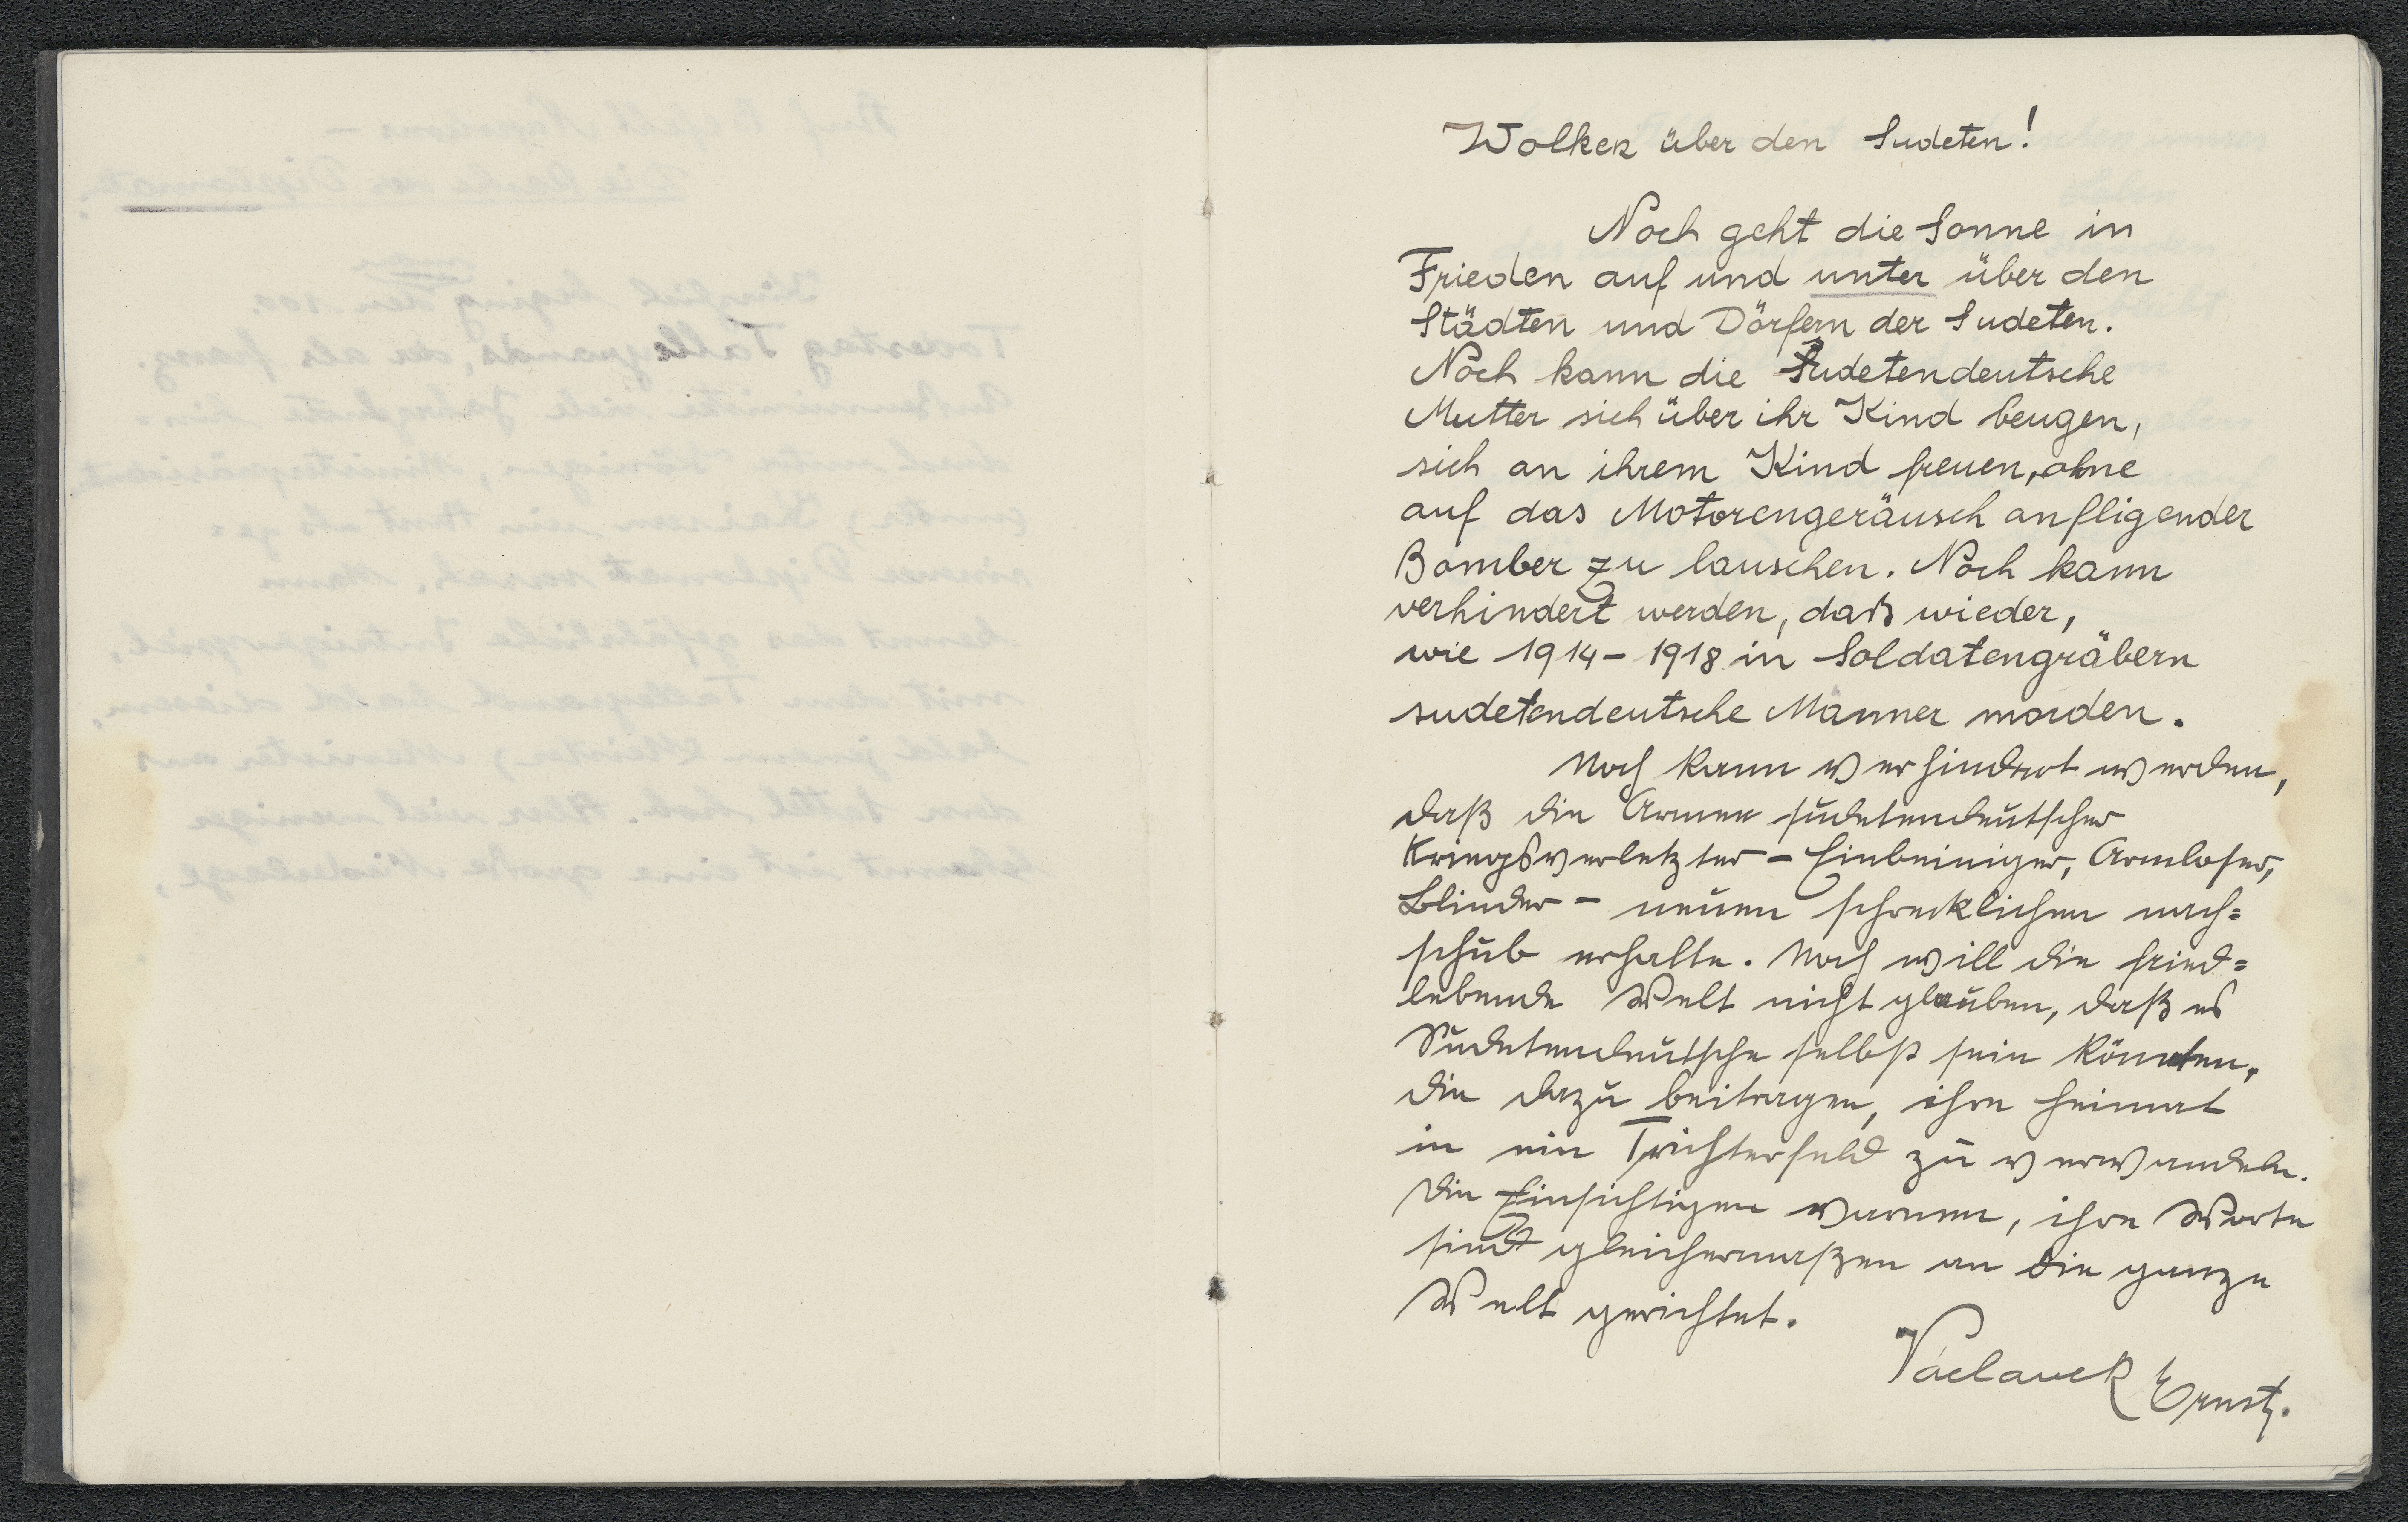 Wolken über den Sudeten!
Noch geht die Sonne in
Frieden auf und unter über den
Städten und Dörfern der Sudeten.
Noch kann die Sudetendeutsche
Mutter sich über ihr Kind beugen,
sich an ihrem Kind freuen, ohne
auf das Motorengeräusch anfligender
Bomber zu lauschen. Noch kann
verhindert werden, daß wieder,
wie 1914-1918 in Soldatengräbern
sudetendeutsche Männer morden.
Noch kann verhindert werden,
daß die Armee sudetendeutscher
Kriegsverletzter - Einbeiniger, Armloser,
Blinder - neuen schrecklichen nach=
schub erhalte. Noch will die fried=
lebende Welt nicht glauben, daß es
Sudetendeutsche selbst sein könnten,
die dazu beitragen, ihre Heimat
in ein Trichterfeld zu verwandeln.
Die Einsichtigen warnen, ihre Worte
sind gleichermaßen an die ganze
Welt gerichtet.
Vaclavek Ernst.